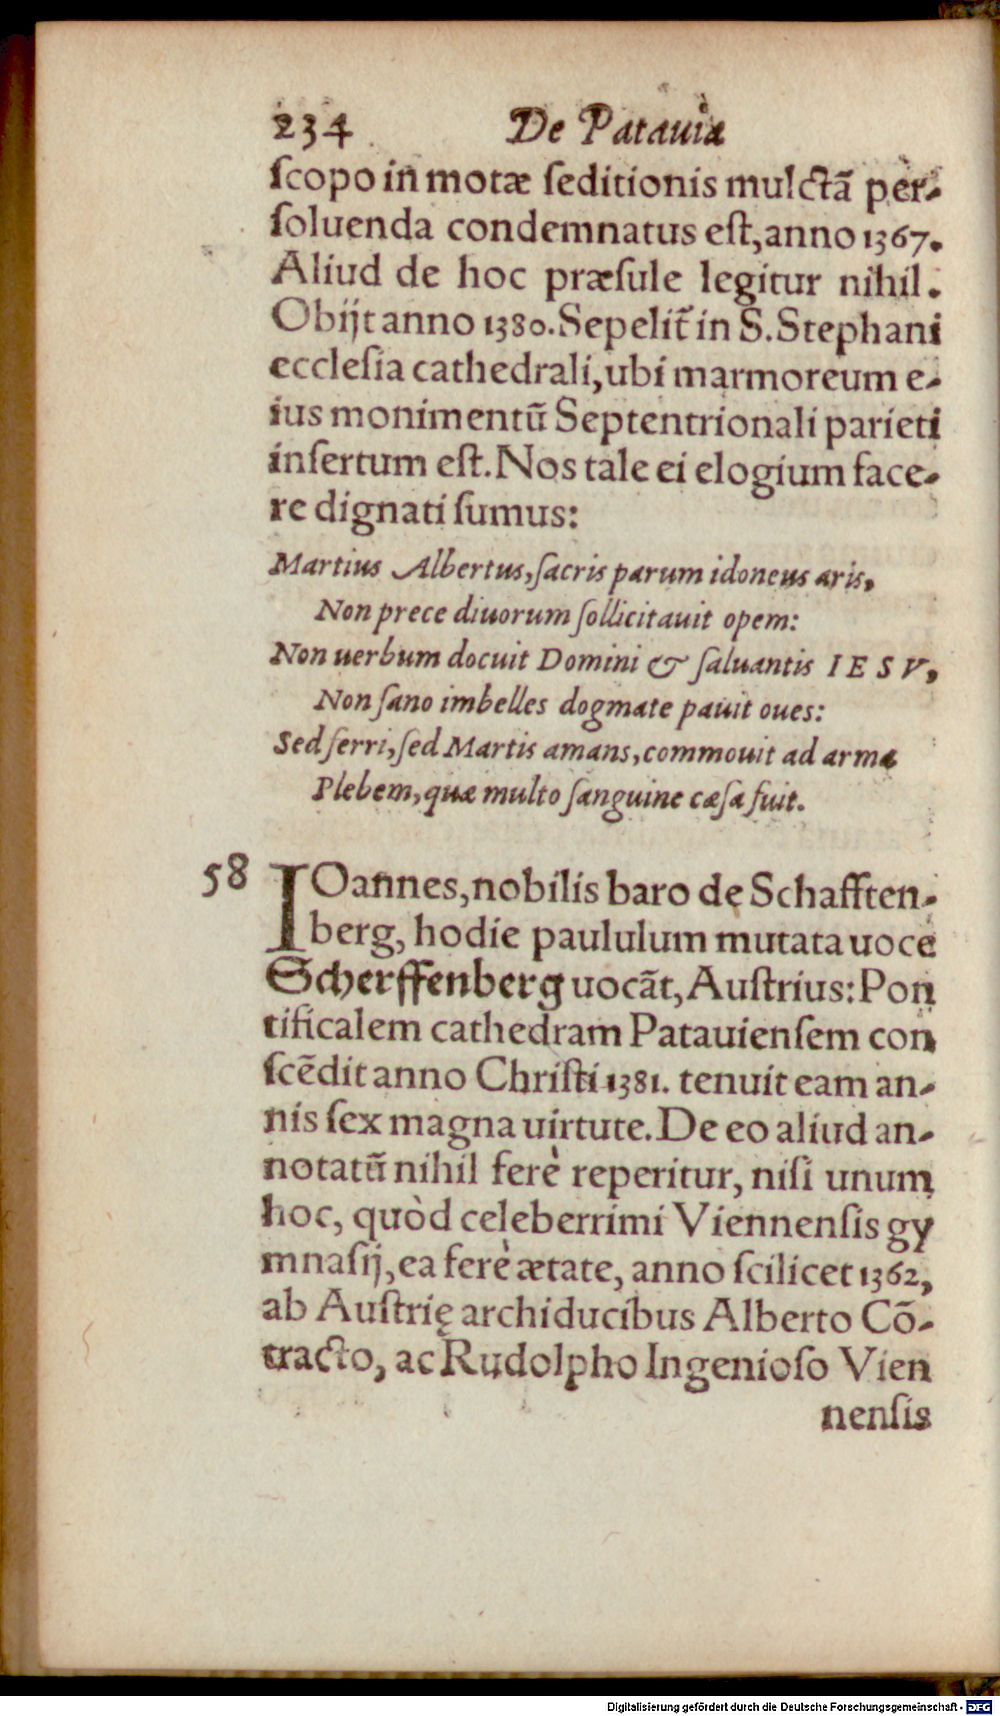 234 De Patauia
scopo in motæ seditionis mulctã per-
soluenda condemnatus est, anno 1367.
Aliud de hoc præsule legitur nihil.
Obijt anno 1380. Sepelit̃ in S. Stephani
ecclesia cathedrali, ubi marmoreum e-
ius monimentũ Septentrionali parieti
insertum est. Nos tale ei elogium face-
re dignati sumus:
Martius Albertus, sacris parum idoneus aris,
Non prece diuorum sollicitauit opem:
Non uerbum docuit Domini & saluantis IESV,
Non sano imbelles dogmate pauit oues:
Sed ferri, sed Martis amans, commouit ad arma
Plebem, quæ multo sanguine cæsa fuit.
58 IOannes, nobilis baro de Schafften-
berg, hodie paululum mutata uoce
Scherffenberg uocãt, Austrius: Pon
tificalem cathedram Patauiensem con
scẽdit anno Christi 1381. tenuit eam an-
nis sex magna uirtute. De eo aliud an-
notatũ nihil ferè reperitur, nisi unum
hoc, quòd celeberrimi Viennensis gy
mnasij, ea ferè ætate, anno scilicet 1362,
ab Austrię archiducibus Alberto Cõ-
tracto, ac Rudolpho Ingenioso Vien
nensis
Digitalisierung gefördert durch die Deutsche Forschungsgemeinschaft - DFG